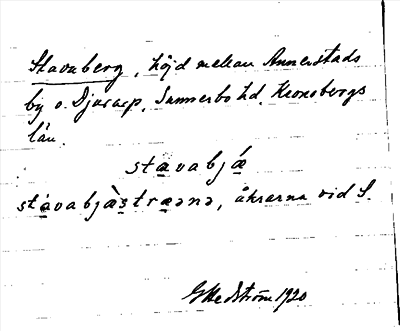 Stavaberg, höjd mellan Annerstads
by o. Djurarp, Sunnerbo hd, Kronobergs
län.
stavabjä
stavabjàstrœənə, åkrarna vid S.
G Hedström 1920